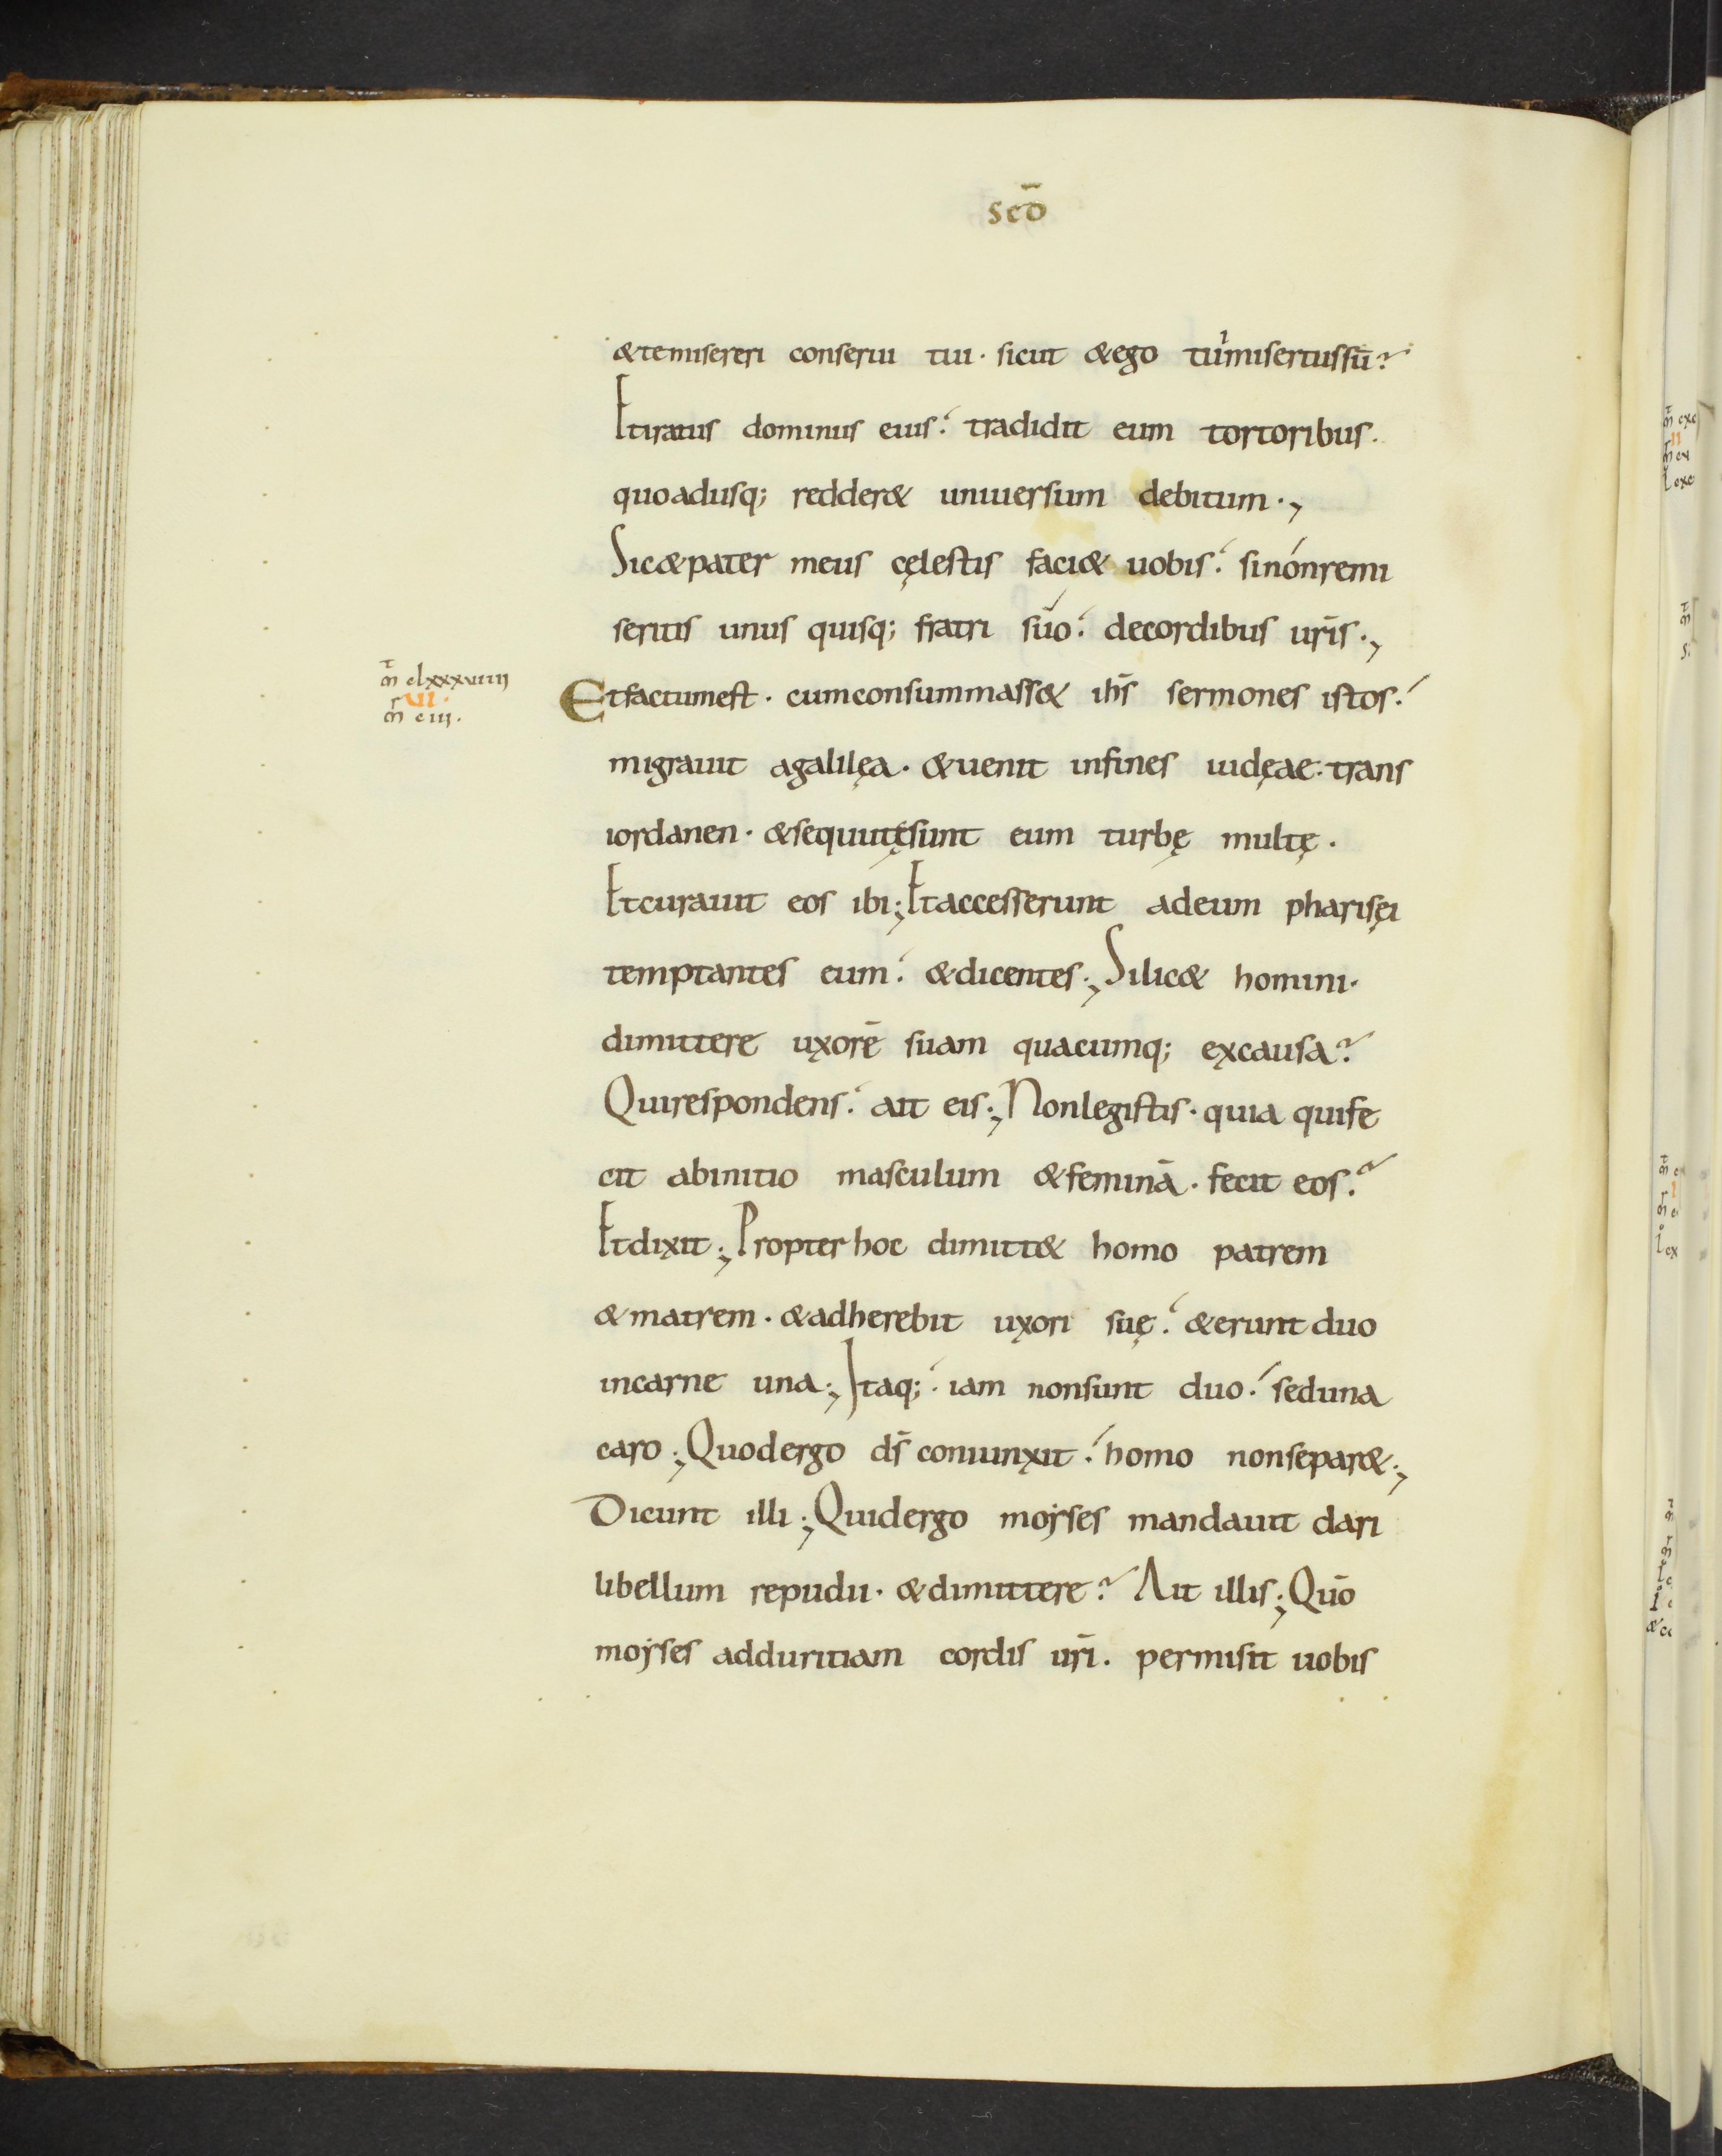 scdō
&temisereri conserui tui · sicut &ego tui misertussū?
Etiratus dominus eius: tradidit eum tortoribus.
quoadusq; redder& uniuersum debitum .,
Sic&pater meus cęlestis faci& uobis: sinónremi
seritis unus quisq; fratri súo: decordibus ur̄is .,
m̄ clxxxviiii
VI
m̄ ciii.
Etfactumest · cumconsummass& ih̄s sermones istos:
migrauit agalilęa · &uenit infines iudęae · trans
iordanen · &sequutęsunt eum turbę multę ·
Etcurauit eos ibi ; Etaccesserunt adeum pharisęi
temptantes eum: &dicentes ; Silic& homini ·
dimittere uxorē suam quacumq; excausa?
Quirespondens: ait eis ; Nonlegistis · quia quife
cit abinitio masculum &feminā · fecit eos?
Etdixit ; Propterhoc dimitt& homo patrem
&matrem · &adherebit uxori suę: &erunt duo
incarne una ; Itaq; · iam nonsunt duo: seduna
caro ; Quodergo ds̄ coniunxit: homo nonsepar& .,
Dicunt illi ; Quidergo moyses mandauit dari
libellum repudii · &dimittere? Ait illis ; Quō
moyses adduritiam cordis ur̄i · permisit uobis